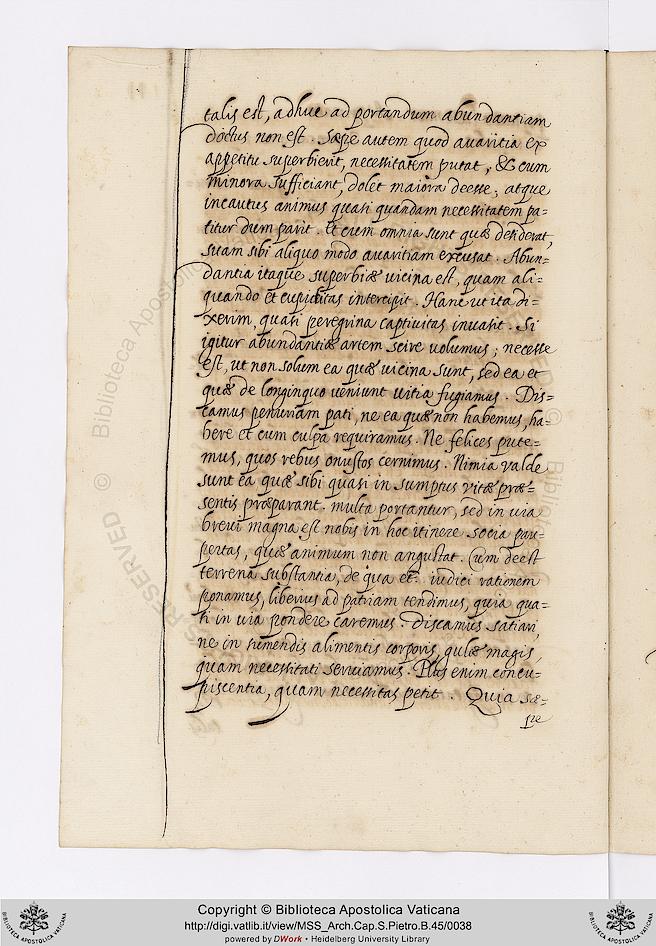 talis est, adhuc ad portandum abundantiam
doctus non est. Sæpe autem quod avaritia ex
appetitu superbierit, necessitatem putat, & cum
minora sufficiant, dolet maiora deesse; atque
incautus animus quasi quandam necessitatem pa=
titur dum parit. Et cum omnia sunt quæ desiderat,
suam sibi aliquo modo avaritiam excusat. Abun=
dantia itaque superbiæ vicina est, quam ali=
quando et cupiditas intercipit. Hanc ut ita di=
xerim, quasi peregrina captivitas invasit. Si
igitur abundantiæ artem scire volumus; necesse
est, ut non solum ea quæ vicina sunt, sed ea et
quæ de longinquo veniunt vitia fugiamus. Dis=
camus penuriam pati, ne ea quæ non habemus, ha=
bere et cum culpa requiramus. Ne felices pute=
mus, quos rebus onustos cernimus. Nimia valde
sunt ea quæ sibi quasi in sumptus vitæ præ=
sentis præparant. multa portantur, sed in via
brevi magna est nobis in hoc itinere socia pau=
pertas, quæ animum non angustat. Cum deest
terrena substantia, de qua et iudici rationem
ponamus, liberius ad patriam tendimus, quia qua=
si in via pondere caremus. Discamus satiari,
ne in sumendis alimentis corporis, gulæ magis,
quam necessitati serviamus. Plus enim concu=
piscentia, quam necessitas petit. Quia sæ=
pe
Biblioteca Apostolica Vaticana
©
RESERVED
Copyright © Biblioteca Apostolica Vaticana
http://digi.vatlib.it/view/MSS_Arch.Cap.S.Pietro.B.45/0038
powered by DWork • Heidelberg University Library
BIBLIOTECA APOSTOLICA VATICANA
BIBLIOTECA APOSTOLICA VATICANA